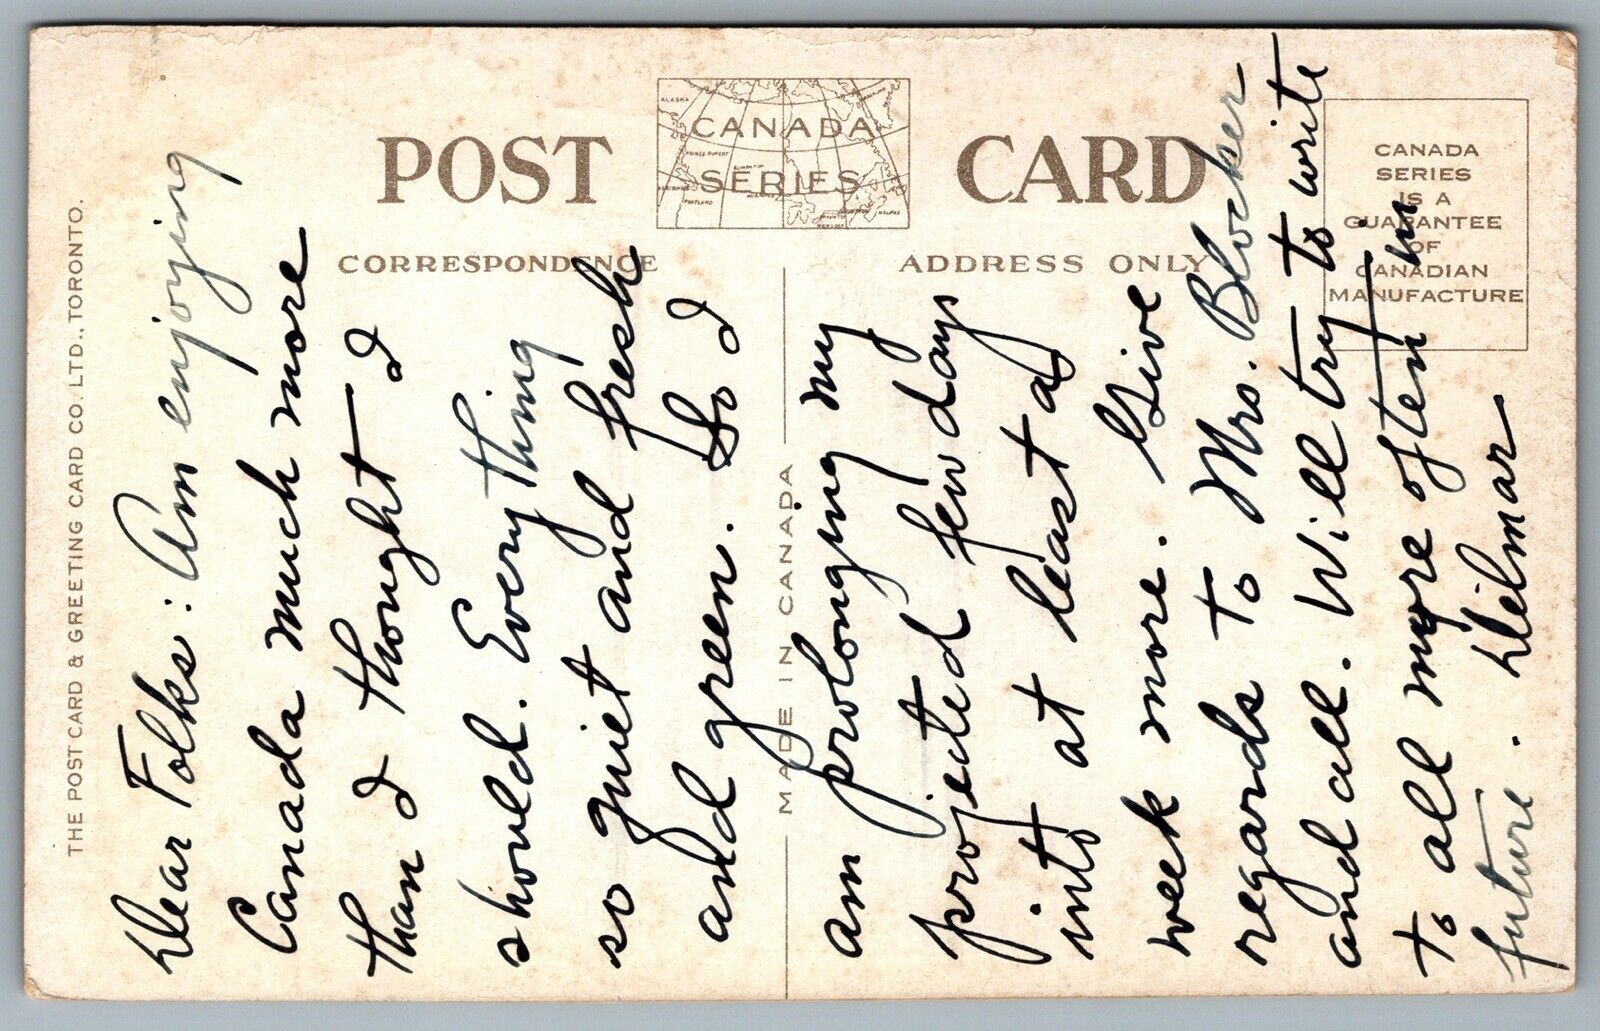 POST CARD
CANADA
SERIES
ALASKA
CORRESPONDENCE
ADDRESS ONLY
CANADA
SERIES
IS A
GUARANTEE
OF
CANADIAN
MANUFACTURE
THE POST CARD & GREETING CARD CO. LTD., TORONTO.
MADE IN CANADA
Dear Folks: Am enjoying
Canada much more
than I thought I
should. Every thing
so quiet and fresh
and green. So I
am prolonging my
projected few days
into at least a
week more. Give
regards to Mrs. Blocher
and all. Will try to write
to all more often in
future. Delmar